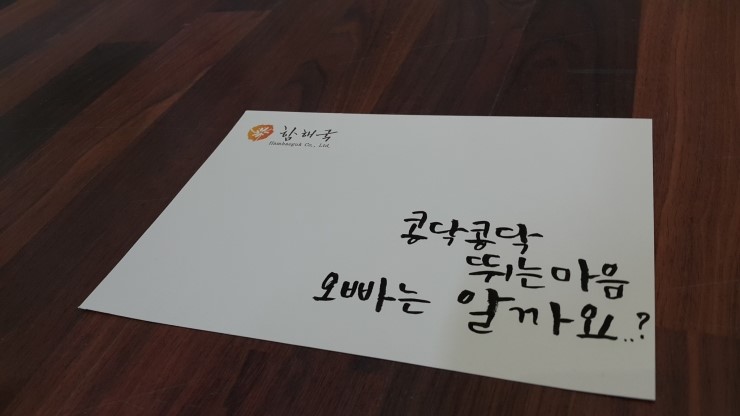 함해국
Hamhaeguk Co., Ltd.
콩닥콩닥
뛰는마음
오빠는 알까요..?